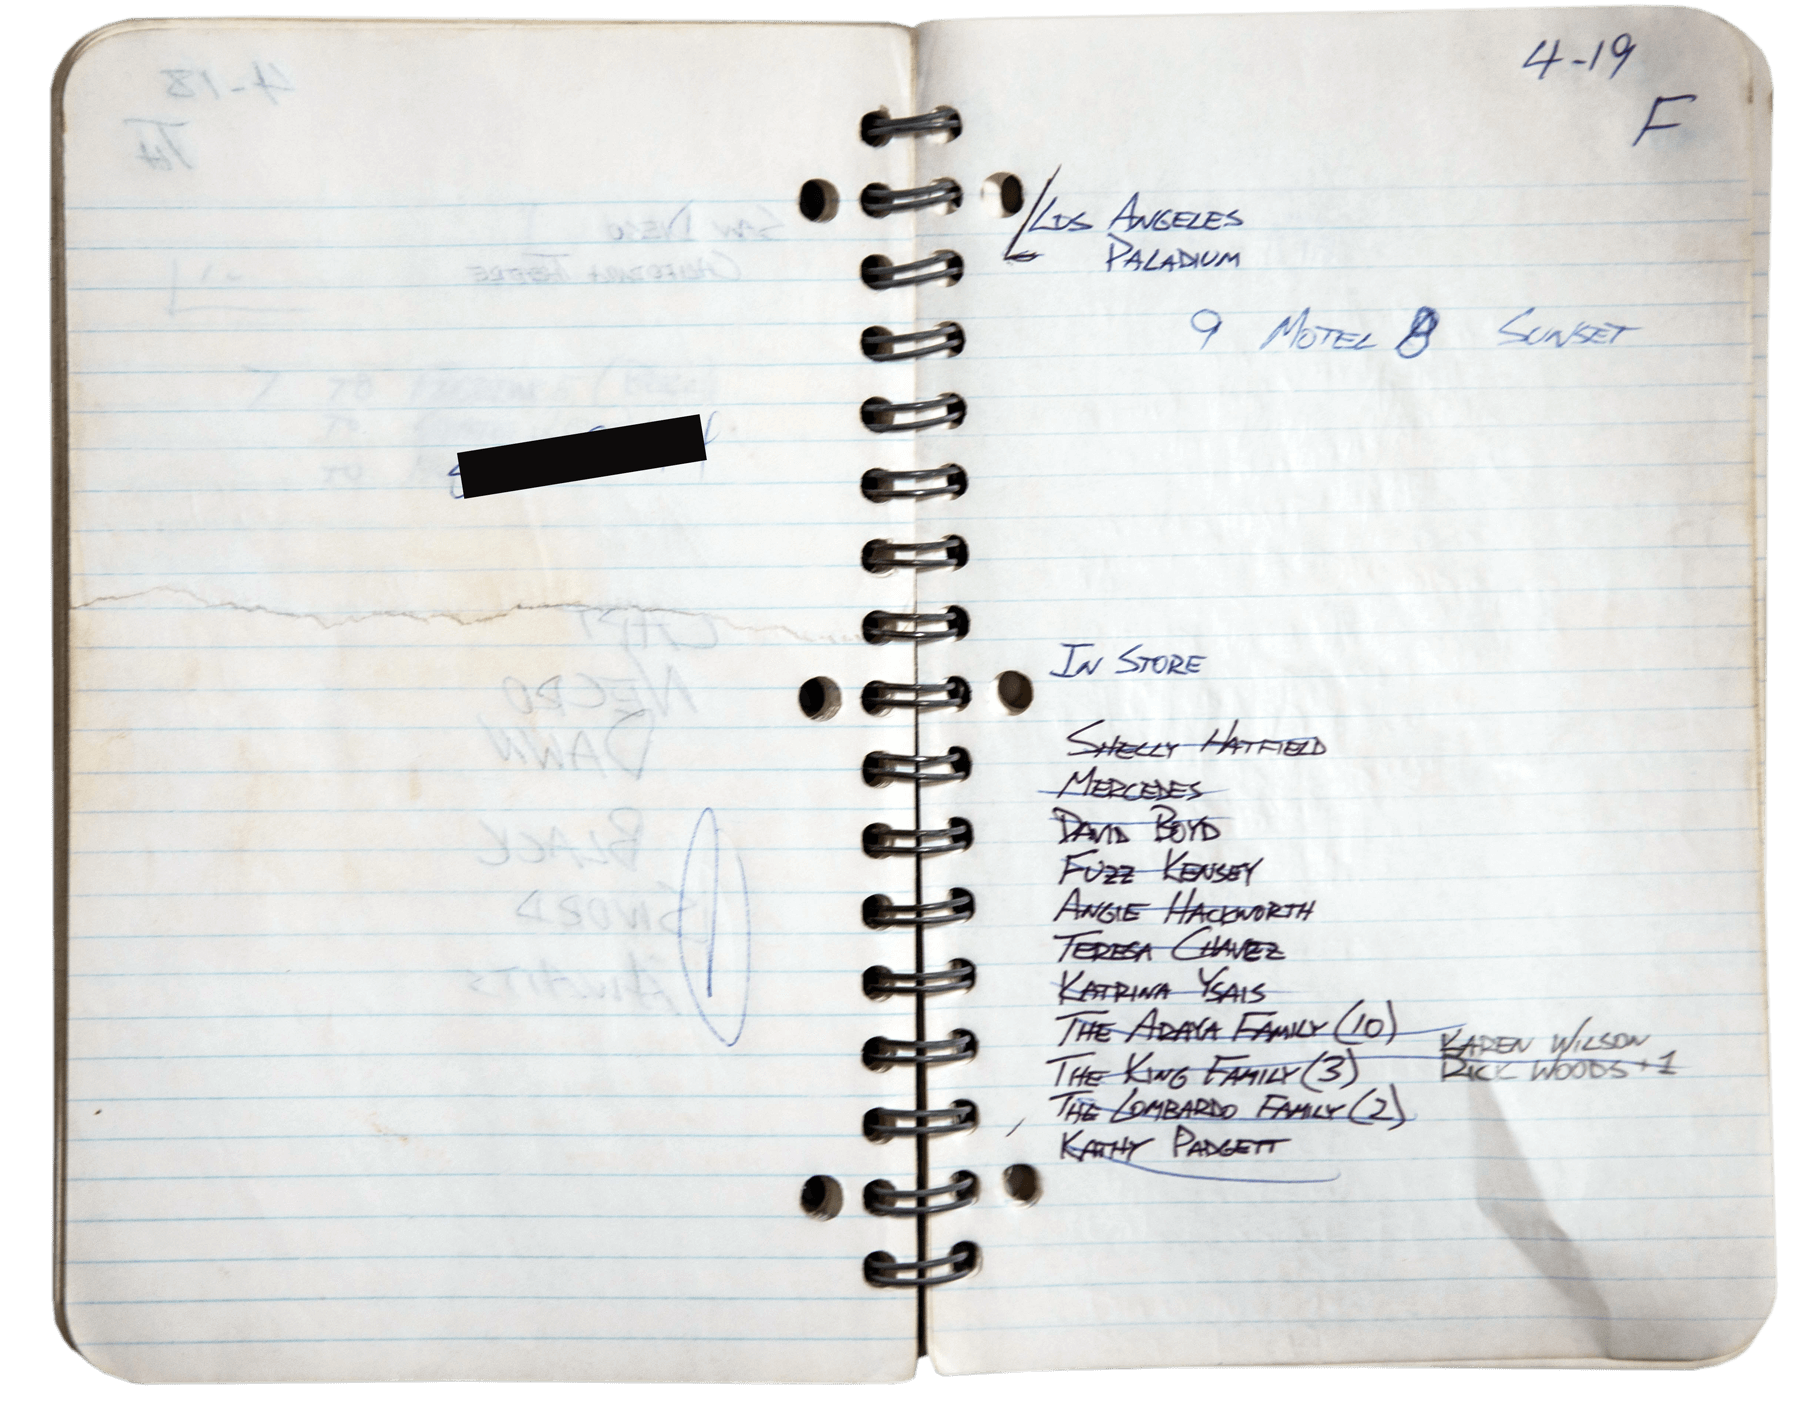 4-18
TH
SAN DIEGO
CALIFORNIA
NECRO
DAWN
BLACK
SWORD
AWAITS
4-19
F
LOS ANGELES
PALADIUM
9 MOTEL 8 SUNSET
IN STORE
SHELLY HATFIELD
MERCEDES
DAVID BOYD
FUZZ KENSEY
ANGIE HACKWORTH
TERESA CHAVEZ
KATRINA YSAIS
THE ARAYA FAMILY (10)
KAREN WILSON
THE KING FAMILY (3)
RICK WOODS +1
THE LOMBARDO FAMILY (2)
KATHY PADGETT